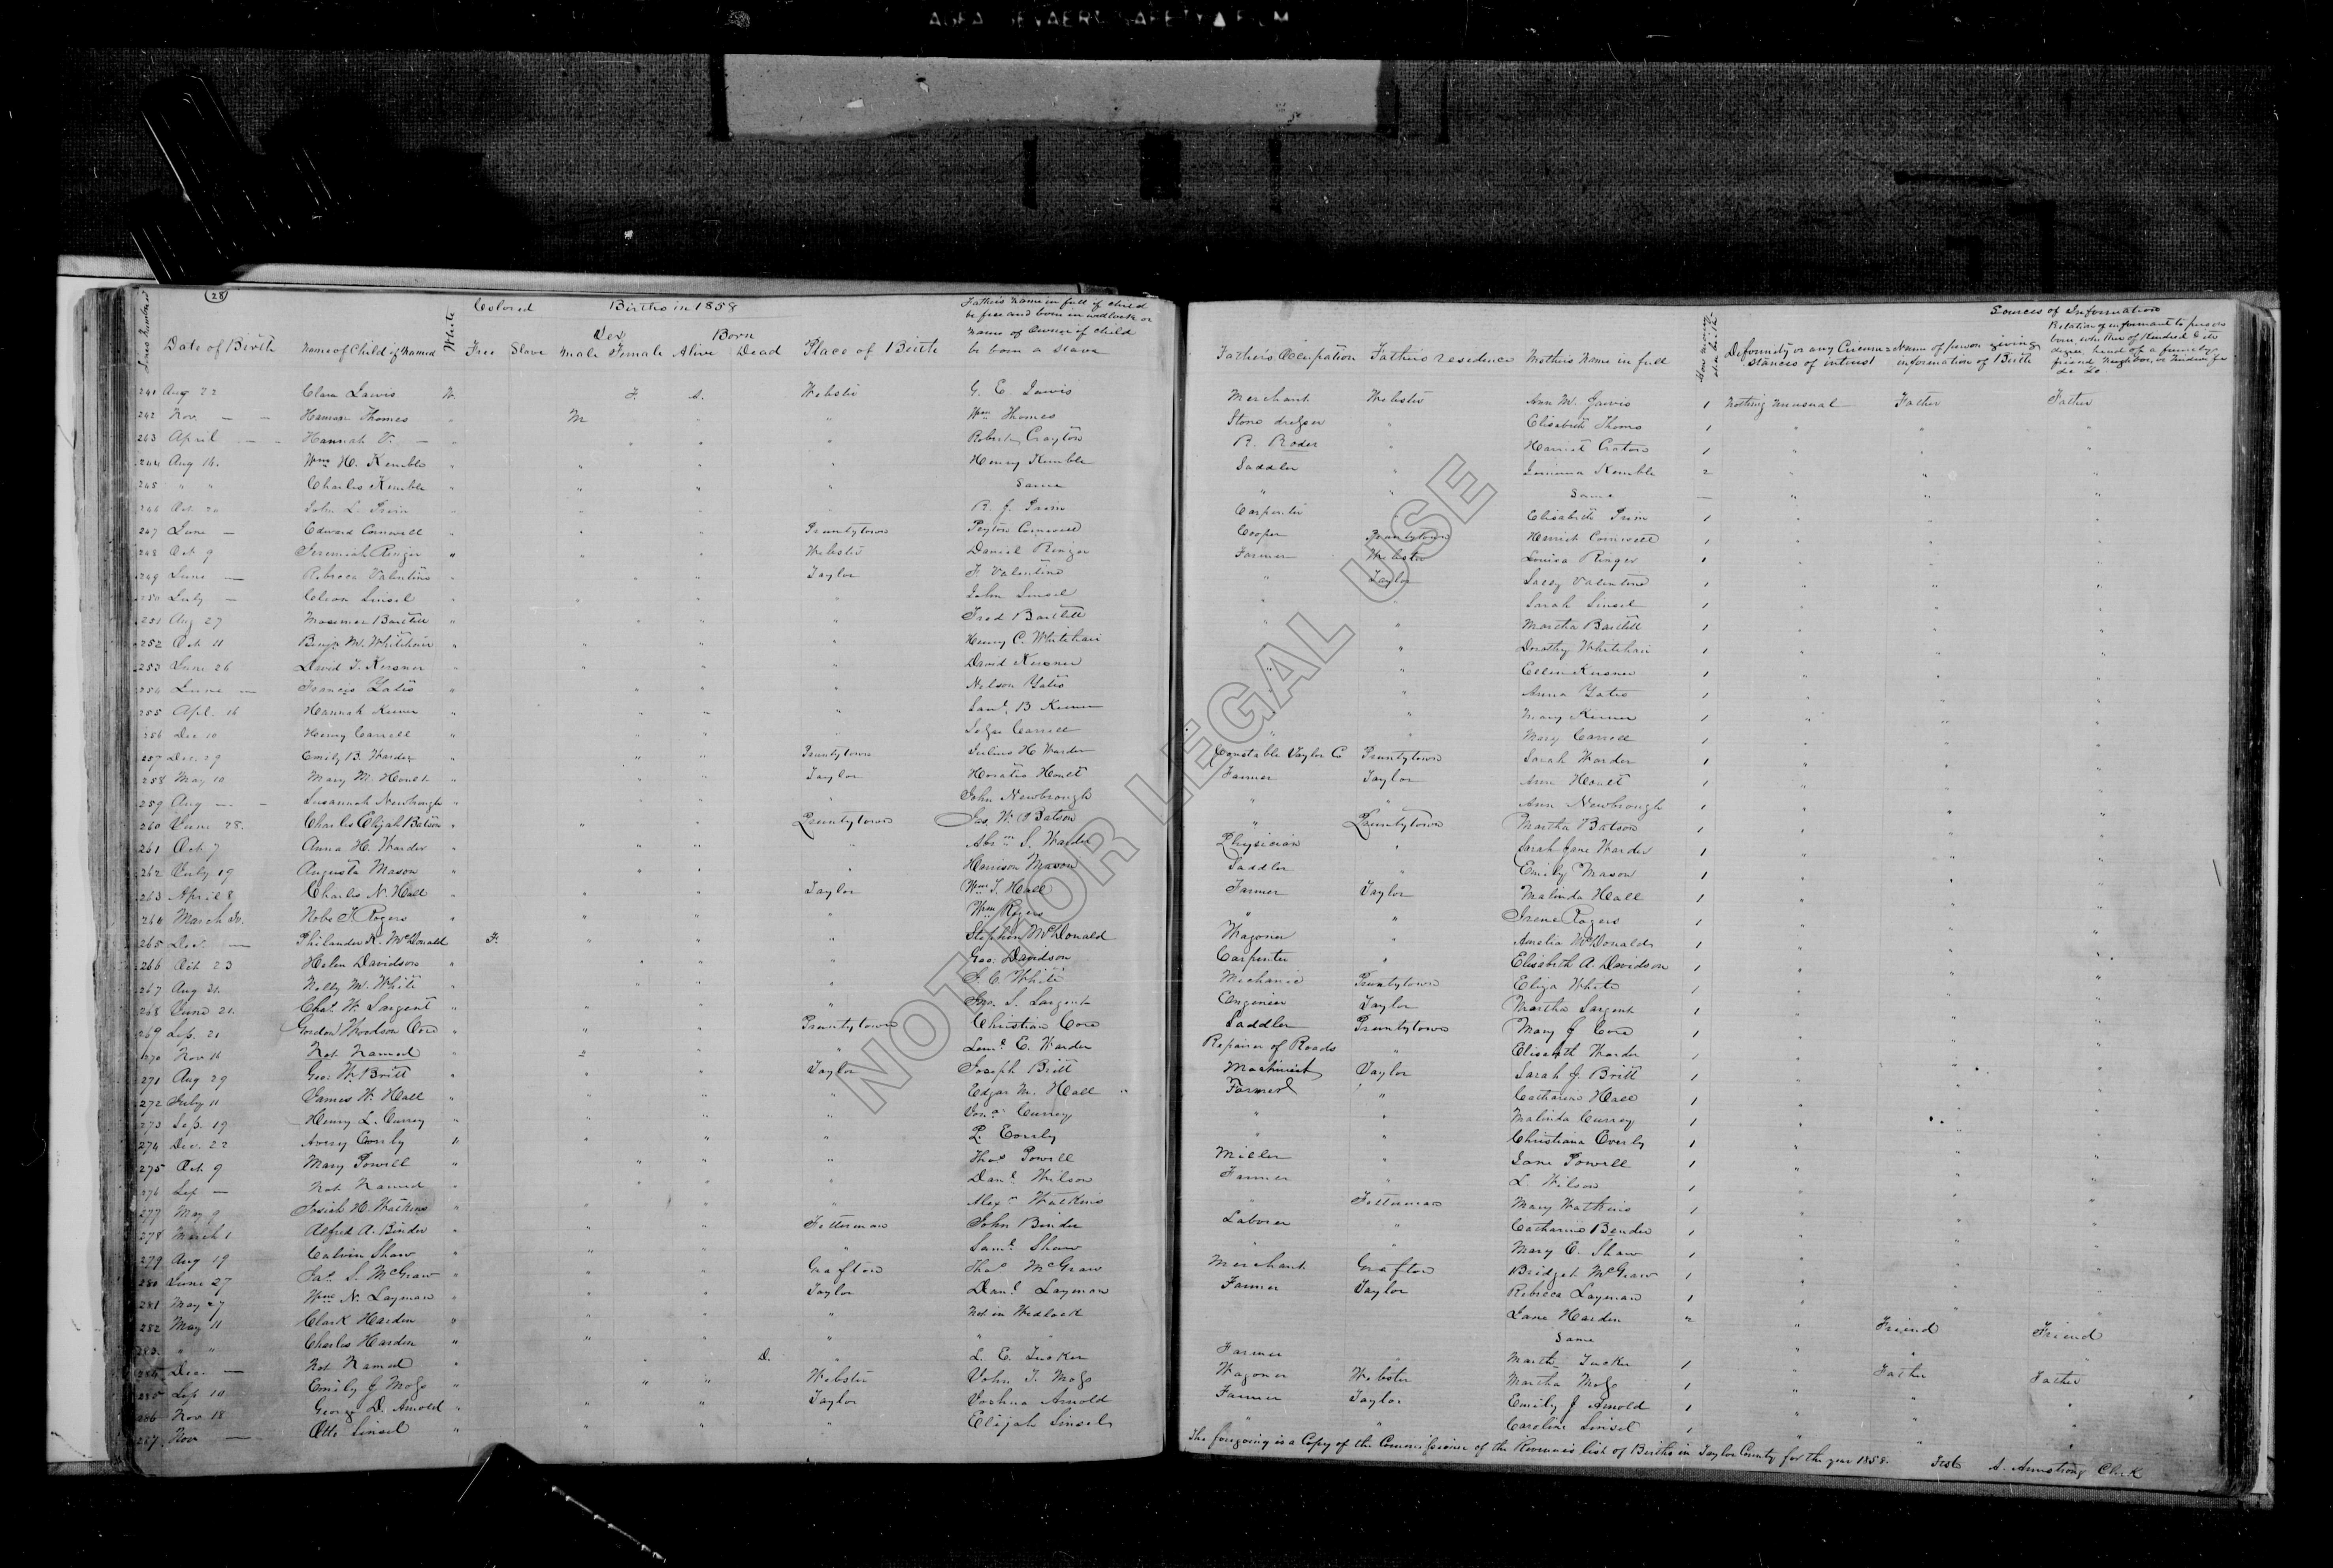 AGFA GEVAERT SAFETY FILM
28
Births in 1858
Colored
Sex
Born
Date of Birth Name of Child if Named White Free Slave Male Female Alive Dead Place of Birth
Fathers Name in full if child be free and born in wedlock or Name of Owner if child be born a slave
Fathers Occupation Fathers residence Mothers Name in full
Deformity or any Circumstances of interest
Sources of Information
Name of person giving information of Birth
Relation of informant to person born
241 Aug 22 Clara Jarvis W. F. A. Webster G. E. Jarvis Merchant Webster Ann M. Jarvis 1 Nothing Unusual Father Father
242 Nov — Thomes " M " " Wm Thomes Stone " Elizabeth Thomes 1 " " "
243 April — Hannah V. — " " " " Crayton R. " Harriet 1 " " "
244 Aug 14. Wm H. Kemble " " " " Henry Kemble Saddler " Kemble 2 " " "
245 " " Charles Kemble " " " " Same " " Same — " " "
246 Oct John L. " " " " R. J. Carpenter " Elisabeth 1 " " "
247 June — Edward Cornwell " " " Pruntytown Peyton Cornwell Cooper Pruntytown Cornwell 1 " " "
248 Oct 9 Jeremiah Ringer " " " Webster Daniel Ringer Farmer Webster Louisa Ringer 1 " " "
249 June — Rebecca Valentine " " " Taylor F. Valentine " Taylor Sally Valentine 1 " " "
250 July — Linsel " " " " John Linsel " " Sarah Linsel 1 " " "
251 Aug 27 Bartlett " " " " Fred Bartlett " " Martha Bartlett 1 " " "
252 Oct 11 Benjn M. Whitehair " " " " Henry C. Whitehair " " Dorothy Whitehair 1 " " "
253 June 26 David T. Kersner " " " " David Kersner " " Ellen Kersner 1 " " "
254 June — Francis Yates " " " " Nelson Yates " " Anna Yates 1 " " "
255 Apl. 16 Hannah Keener " " " " Saml. B Keener " " Mary Keener 1 " " "
256 Dec 10 Henry Carrell " " " " Carrell " " Mary Carrell 1 " " "
257 Dec. 29 Emily B. Warder " " " Pruntytown Julius H Warder Constable Taylor C Pruntytown Sarah Warder 1 " " "
258 May 10 Mary M. Hoult " " " Taylor Horatio Hoult Farmer Taylor Ann Hoult 1 " " "
259 Aug — Susannah Newbrough " " " " John Newbrough " " Ann Newbrough 1 " " "
260 June 28. Charles Elijah Batson " " " Pruntytown Jas. W. Batson " Pruntytown Martha Batson 1 " " "
261 Oct 7 Anna H. Warder " " " " Abrm S. Warder Physician " Sarah Jane Warder 1 " " "
262 July 19 Augusta Mason " " " " Harrison Mason Saddler " Emily Mason 1 " " "
263 April 8 Charles N. Hall " " " Taylor Wm T. Hall Farmer Taylor Malinda Hall 1 " " "
264 March 30. Robt F. Rogers " " " " Wm Rogers " " Irene Rogers 1 " " "
265 Dec. — Philander K. McDonald F. " " " Stephen McDonald Wagoner " Amelia McDonald 1 " " "
266 Oct 23 Helen Davidson " " " " Geo. Davidson Carpenter " Elisabeth A. Davidson 1 " " "
267 Aug 31. Nelly M. White " " " " White Mechanic Pruntytown Eliza White 1 " " "
268 June 21. Chas. W. Sargent " " " " Jno. S. Sargent Engineer Taylor Martha Sargent 1 " " "
269 Sep. 21 Gordon Woodson Core " " " Pruntytown Christian Core Saddler Pruntytown Mary J Core 1 " " "
270 Nov 16 Not Named " " " " Leml. E. Warder Repairer of Roads " Elisabeth Warder 1 " " "
271 Aug 29 Geo. W. Britt " " " Taylor Joseph Britt Machinist Taylor Sarah J. Britt 1 " " "
272 July 11 James W. Hall " " " " Edgar M. Hall Farmer " Catharine Hall 1 " " "
273 Sep. 19 Henry L. Currey " " " " Currey " " Malinda Currey 1 " " "
274 Dec. 22 Avery " " " " P. " " Christiana Overly 1 " " "
275 Oct. 9 Mary Powell " " " " Thos Powell Miller " Jane Powell 1 " " "
276 Sep — Not Named " " " " Danl. Wilson Farmer " L. Wilson 1 " " "
277 May 9 Josiah H. Watkins " " " " Alexr Watkins " Fetterman Mary Watkins 1 " " "
278 March 1 Alfred A. Binder " " " Fetterman John Binder Laborer " Catharine Bender 1 " " "
279 Aug 19 Calvin Shaw " " " " Saml. Shaw " " Mary E. Shaw 1 " " "
280 June 27 Jas. S. McGraw " " " Grafton Thos McGraw Merchant Grafton Bridget McGraw 1 " " "
281 May 27 Wm N. Layman " " " Taylor Danl. Layman Farmer Taylor Rebecca Layman 1 " " "
282 May 11 Clark Harden " " " " Not in Wedlock Jane Harden 2 " Friend Friend
283. " " Charles Harden " " " " " Same " "
284 Dec. — Not Named " " D. " L. E. Tucker Farmer " Martha Tucker 1 " Father Father
285 Sep 10 Emily J " " " Webster John T. Wagoner Webster Martha 1 " " "
286 Nov 18 George D. Arnold " " " Taylor Joshua Arnold Farmer Taylor Emily J Arnold 1 " " "
287 Nov — Otto Linsel " " " " Elijah Linsel " " Caroline Linsel 1 " " "
The foregoing is a Copy of the Commissioner of the Revenues list of Births in Taylor County for the year 1858. Test A. Armstrong Clerk
NOT FOR LEGAL USE